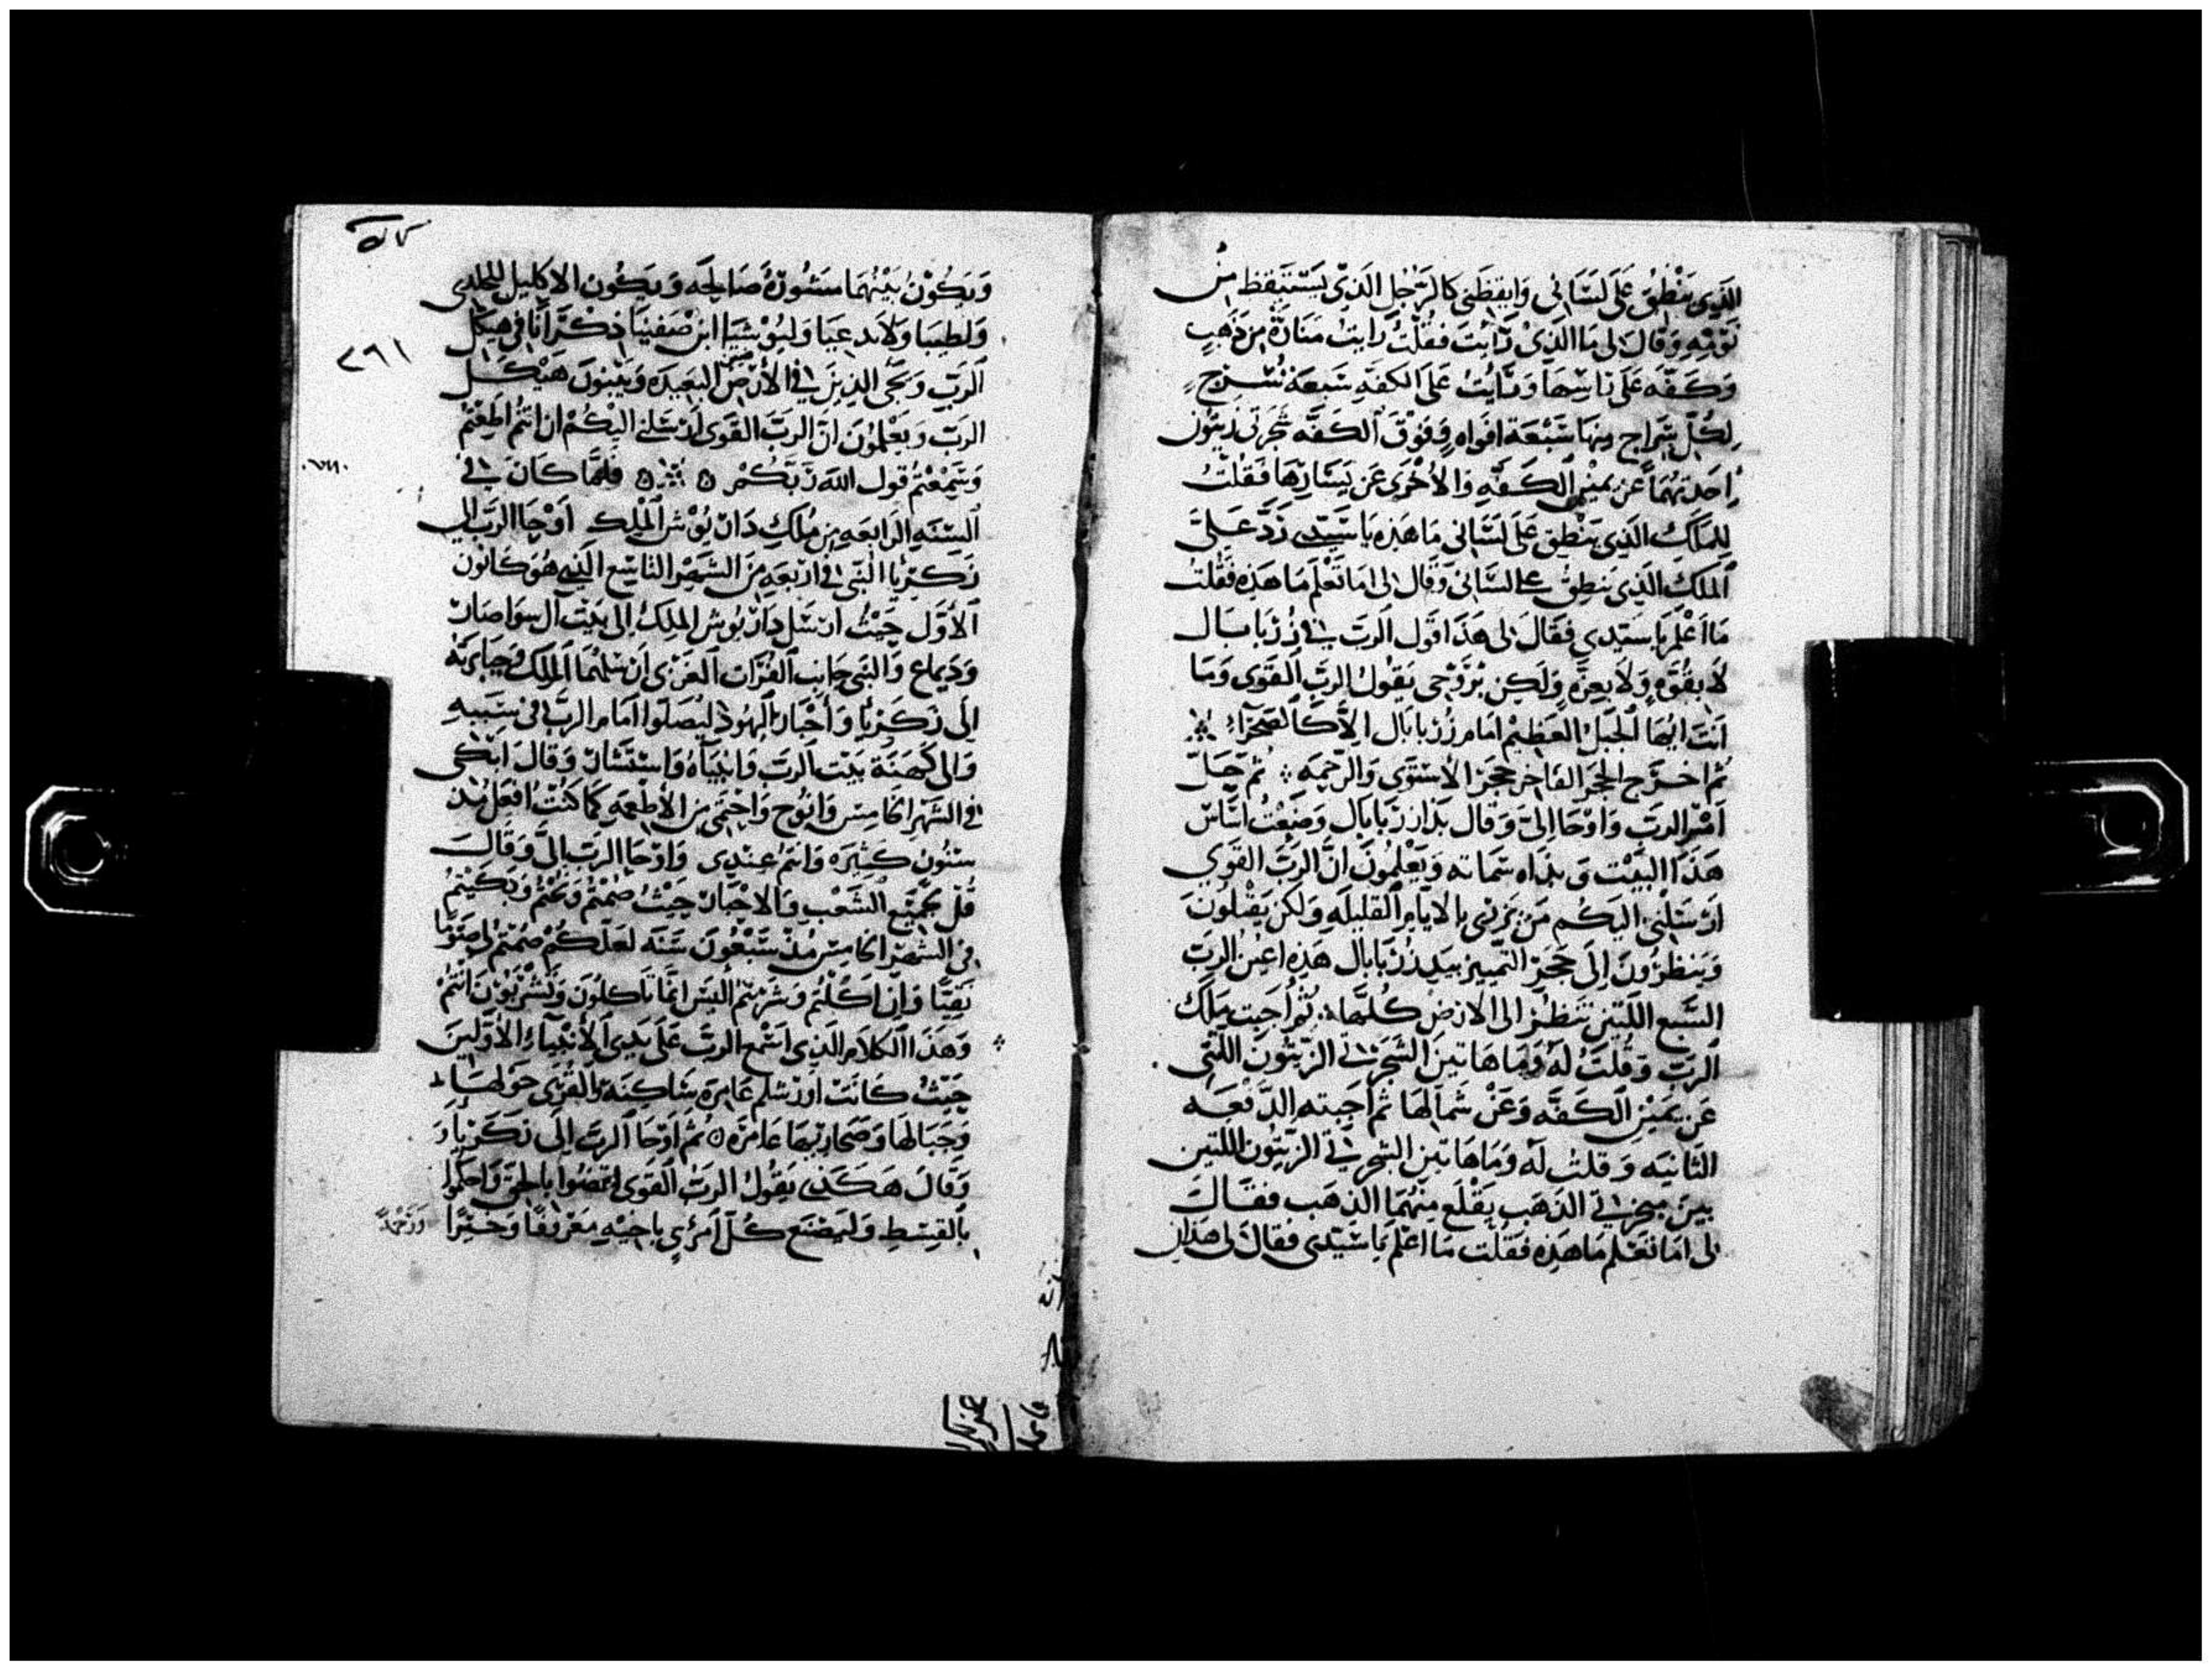 الذي ينطق على لساني وايقظني كالرجل الذي يستيقظ من
نومه وقال لي ما الذي رايت فقلت رايت منارة من ذهب
وكفه على راسها ورايت على الكفه سبعة سرج
لكل سراج منها سبعة افواه وفوق الكفه شجرتي زيتون
احدتهما عن يمين الكفه والاخرى عن يسارها فقلت
للملك الذي ينطق على لساني ما هذه يا سيدي رد علي
الملك الذي ينطق على لساني وقال لي اما تعلم ما هذه فقلت
ما اعلم يا سيدي فقال لي هذا قول الرب في زربابال
لا بقوه ولا بعزه ولكن بروحي يقول الرب القوي وما
انت ايها الجبل العظيم امام زربابال الا كالصحراء
ثم اخرج الحجر الفاخر حجر الاستوى والرحمه ثم حل
امر الرب واوحا الي وقال يدا زربابال وضعت اساس
هذا البيت ويداه تتمانه ويعلمون ان الرب القوي
ارسلني اليكم من يزري بالايام القليله ولكن يقبلون
وينظرون الى حجر التمييز بيد زربابال هذه اعين الرب
السبع اللتين تنظر الى الارض كلها ثم اجبت ملك
الرب وقلت له وما هاتين الشجرتي الزيتون اللتي
عن يمين الكفه وعن شمالها ثم اجبته الدفعه
الثانيه وقلت له وما هاتين الشجرتي الزيتون اللتين
بين مجرتي الذهب يقلع منهما الذهب فقال
لي اما تعلم ما هذه فقلت ما اعلم يا سيدي فقال لي هذان
ويكون بينهما مشورة صالحه ويكون الاكليل لحلدي
ولطيبا ولاندعيا وليوشيا ابن صفنيا ذكرانا في هيكل
الرب ويجى الذين في الارض البعيده ويبنون هيكل
الرب ويعلمون ان الرب القوي ارسلني اليكم ان انتم اطعتم
وسمعتم قول الله ربكم فلما كان في
السنه الرابعه من ملك داريوش الملك اوحا الرب الى
زكريا النبي في اربعه من الشهر التاسع الذي هو كانون
الاول حيث ارسل داريوش الملك الى بيت آل سواصار
الملك وجبابرته
الى زكريا واحبار اليهود ليصلوا امام الرب في سببه
والى كهنة بيت الرب وانبياه واستشار وقال ابكي
في الشهر الخامس وانوح واحتمي من الاطعمه كما كنت افعل مذ
سنون كثيره وانتم عندي واوحا الرب الي وقال
قل لجميع الشعب والاحبار حيث صمتم ونحتم وبكيتم
في الشهر الخامس مذ سبعون سنه لعلكم صمتم لي صوما
نقيا وان اكلتم وشربتم اليس انما تاكلون وتشربون انتم
وهذا الكلام الذي اسمع الرب على يدي الانبياء الاولين
حيث كانت اورشلم عامرة ساكنة والقرى حولها
وجبالها وصحاريها عامره ثم اوحا الرب الى زكريا
وقال هكذى يقول الرب القوي اقضوا بالحق واحكموا
بالقسط وليصنع كل امرئ باخيه معروفا وخيرا
ورحمة
٢٦١